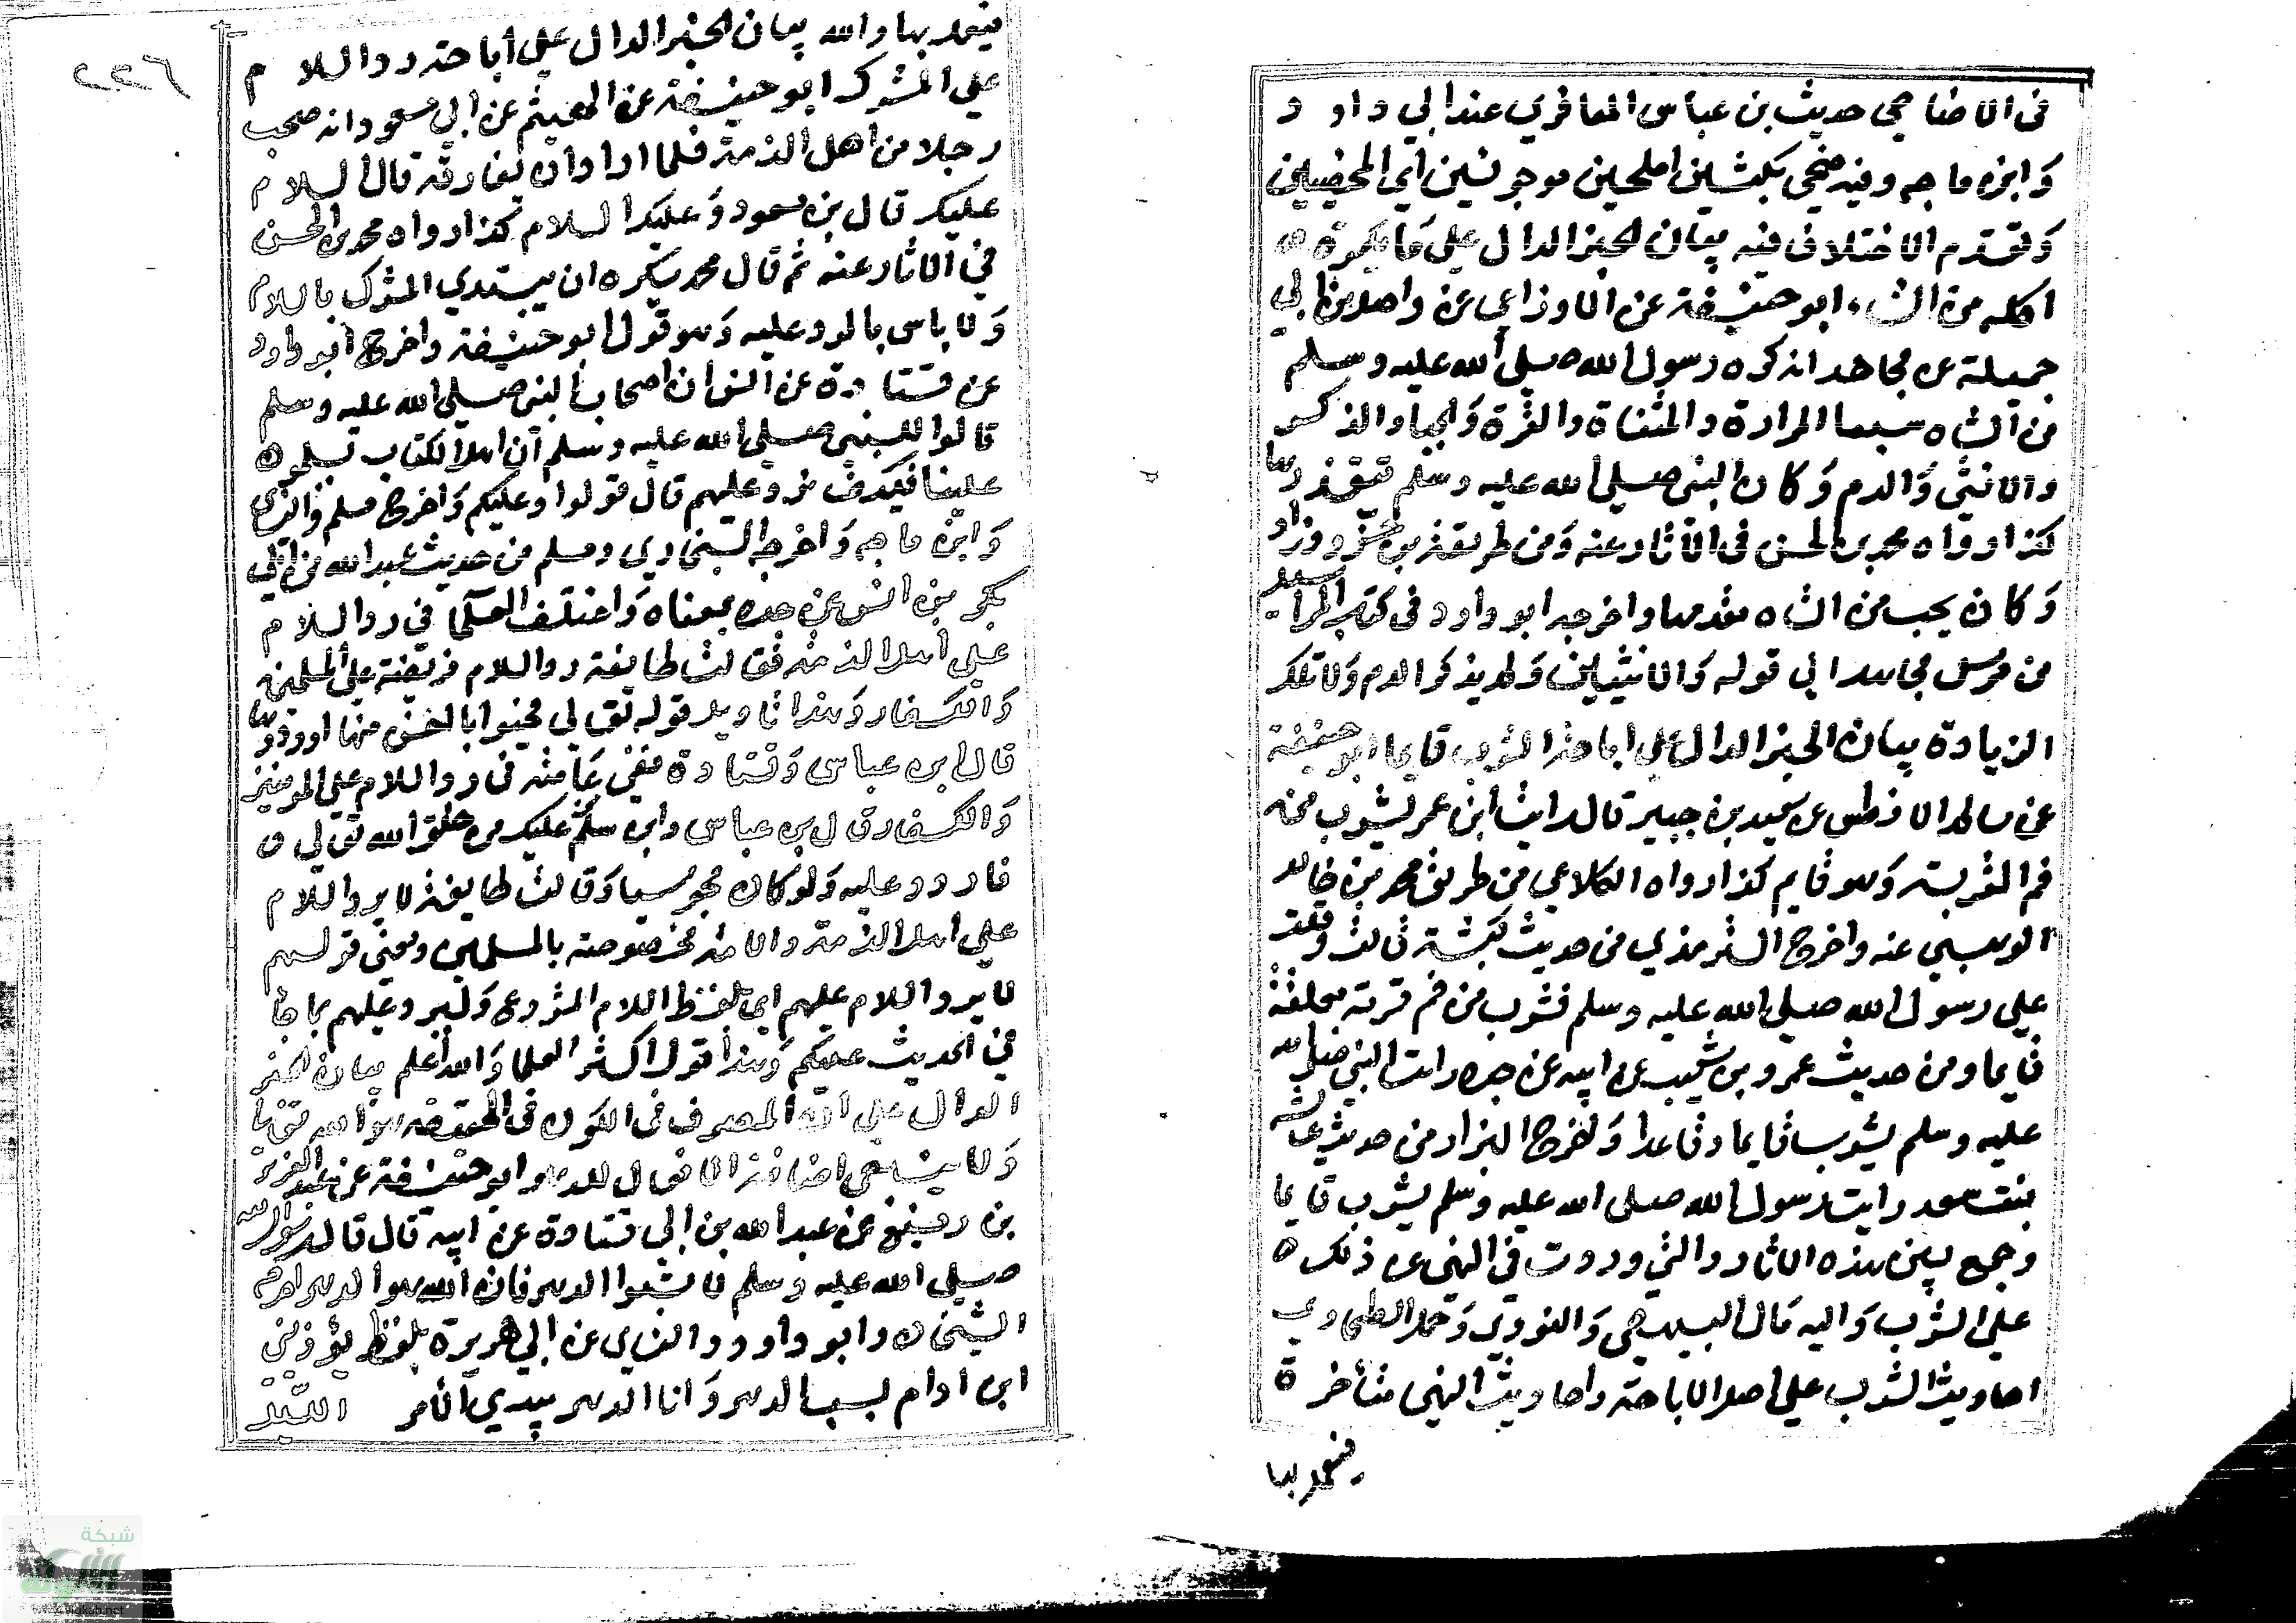 في الاضاحي حديث بن عباس المعافري عند ابي داود
وابن ماجه وفيه ضحى بكبشين املحين موجوئين اي الخصيين
وتقدم الاختلاف فيه بيان الخبر الدال على ما يكره
اكله من الشاء ابو حنيفة عن الاوزاعي عن واصل بن ابي
جميلة عن مجاهد انه كره رسول الله صلى الله عليه وسلم
من الشاه سبعا المرارة والمثناة والغدة والحيا والذكر
والانثى والدم وكان النبي صلى الله عليه وسلم يتقذرها
كذا رواه محمد بن الحسن في الآثار عنه ومن طريقه بن خسرو وزاد
وكان يحب من الشاه مقدمها واخرجه ابو داود في كتاب المراسيل
من مرسل مجاهد الى قوله والانثيين ولم يذكر الدم ولا تلك
الزيادة بيان الخبر الدال على اباحة الشرب قايما ابو حنيفة
عن سالم الافطس عن سعيد بن جبير قال رايت ابن عمر يشرب من
فم القربة وهو قايم كذا رواه الكلاعي من طريق محمد بن خالد
الوهبي عنه واخرج الترمذي من حديث كبشة قالت دخلت
علي رسول الله صلى الله عليه وسلم فشرب من فم قربة معلقة
قايما ومن حديث عمرو بن شعيب عن ابيه عن جده رايت النبي صلى الله
عليه وسلم يشرب قايما وقاعدا واخرج البزار من حديث عائشة
بنت سعد رايت رسول الله صلى الله عليه وسلم يشرب قايما
وجمع بين هذه الاثار والتي وردت في النهي عن ذلك
على الشرب واليه مال البيهقي والنووي وحمل الطحاوي
احاديث الشرب على اصل الاباحة واحاديث النهي متأخرة
فيعمل بها
٢٢٦
فيعمل بها والله بيان الخبر الدال على أباحة رد السلام
على المشرك ابو حنيفة عن الهيثم عن ابن مسعود انه صحب
رجلا من اهل الذمة فلما اراد ان يفارقه قال السلام
عليك قال بن مسعود وعليك السلام كذا رواه محمد بن الحسن
في الاثار عنه ثم قال محمد يكره ان يبتدي المشرك بالسلام
ولا باس بالرد عليه وهو قول ابو حنيفة واخرج ابو داود
عن قتادة عن انس ان اصحاب النبي صلى الله عليه وسلم
قالوا للنبي صلى الله عليه وسلم ان اهل الكتاب يسلمون
علينا فكيف نرد عليهم قال قولوا وعليكم واخرج مسلم والنساي
وابن ماجه واخرجه البخاري ومسلم من حديث عبد الله بن ابي
بكر بن انس عن جده بمعناه واختلف العلما في رد السلام
على اهل الذمة فقالت طايفة رد السلام فريضة على المسلمين
والكفار وهذا تاويل قوله تعالى فحيوا باحسن منها او ردوها
قال ابن عباس وقتادة هي عامة في رد السلام على المومنين
والكفار قال بن عباس وابن سلم عليك من خلق الله تعالى
فاردد عليه ولو كان مجوسيا وقالت طايفة لا يرد السلام
على اهل الذمة والاية مخصوصة بالمسلمين ومعنى قولهم
لا يرد السلام عليهم اي بلفظ السلام المشروع وليرد عليهم بما جا
في الحديث عليكم وهذا قول اكثر العلما والله أعلم بيان الخبر
الدال على ان المصرف في الكون في الحقيقة هو الله تعالى
ولا ينبغي اضافة الافعال للدهر ابو حنيفة عن عبد العزيز
بن رفيع عن عبد الله بن ابي قتادة عن ابيه قال قال رسول الله
صلى الله عليه وسلم لا تسبوا الدهر فان الله هو الدهر اخرجه
الشيخان وابو داود والنساي عن ابي هريرة بلفظ يؤذيني
ابن ادام يسب الدهر وانا الدهر بيدي الأمر الليل
شبكة
الألوكة
www.alukah.net